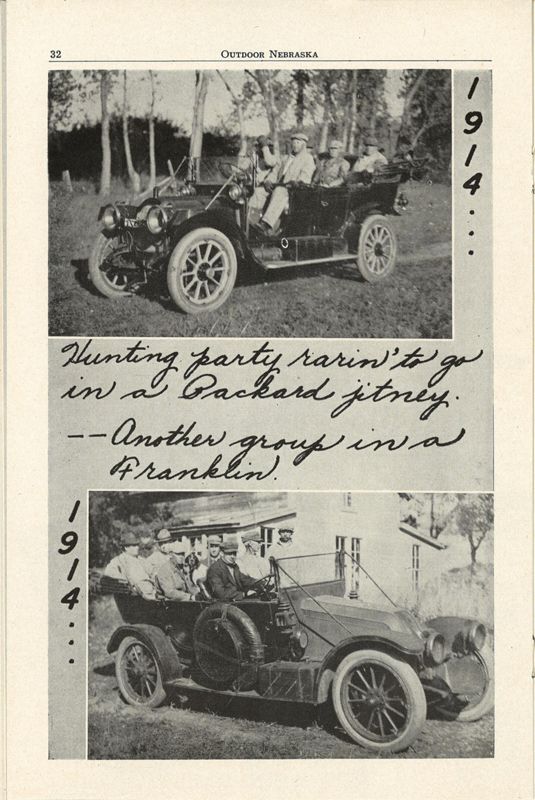 32
OUTDOOR NEBRASKA
1914...
Hunting party rarin' to go
in a Packard jitney.
--Another group in a
Franklin.
1914...